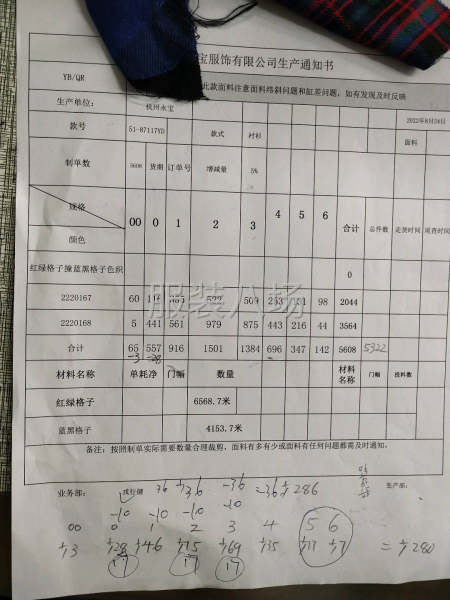 宝服饰有限公司生产通知书
YB/QR 此款面料注意面料纬斜问题和缸差问题，如有发现及时反映
生产单位： 杭州永宝 2022年8月24日
款号 51-87117YD 款式 衬衫 面料
制单数 5608 货期 订单号 增减量 5%
规格 00 0 1 2 3 4 5 6 合计 总件数 走货时间
颜色
红绿格子撞蓝黑格子色织 0
2220167 60 116 355 522 509 253 131 98 2044
2220168 5 441 561 979 875 443 216 44 3564
合计 65 557 916 1501 1384 696 347 142 5608 5322
-3 -28
材料名称 单耗净 门幅 数量 材料名称 门幅 投料数
红绿格子 6568.7米
蓝黑格子 4153.7米
备注：按照制单实际需要数量合理裁剪，面料有多有少或面料有任何问题都需及时通知。
业务部： 生产部：
36 +36 -36 =36 +286
-10 -10 -10 -10
00 0 1 2 3 4 5 6
+3 +28 +46 +75 +69 +35 +17 +7 = +280
17 17 17
服装八场